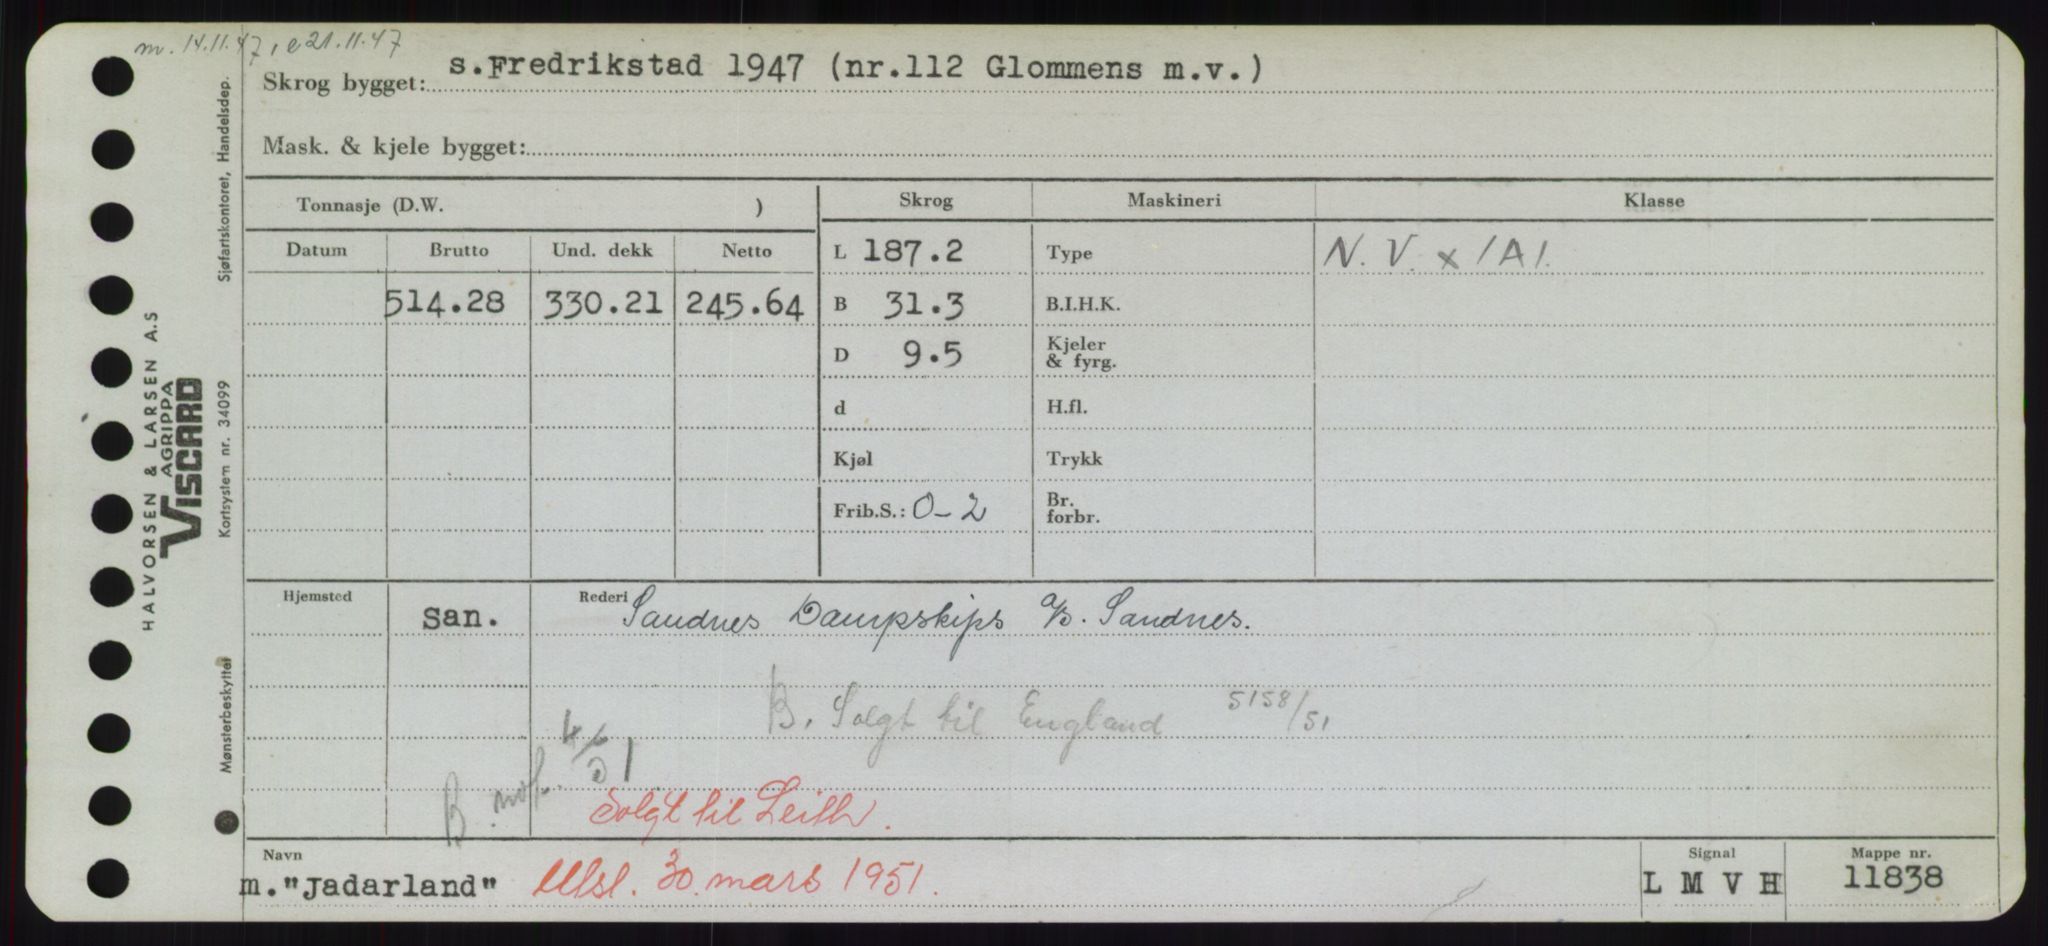 m. 14.11.47, e 21.11.47
Skrog bygget: s.Fredrikstad 1947 (nr.112 Glommens m.v.)
Mask. & kjele bygget:
Tonnasje (D.W. )
Skrog Maskineri Klasse
Datum Brutto Und. dekk Netto
L 187.2 Type N. V. x 1A1.
514.28 330.21 245.64 B 31.3 B.I.H.K.
D 9.5 Kjeler & fyrg.
d H.fl.
Kjøl Trykk
Frib.S.: 0-2 Br. forbr.
Hjemsted San. Rederi Sandnes Dampskips A/S. Sandnes.
B. Solgt til England 5158/51
B. not. 4/6 51
Solgt til Leith.
Navn Signal Mappe nr.
m."Jadarland" Utsl. 30. mars 1951. L M V H 11838
Sjøfartskontoret, Handelsdep.
HALVORSEN & LARSEN A.S
AGRIPPA
VISCARD
Kortsystem nr. 34099
Mønsterbeskyttet